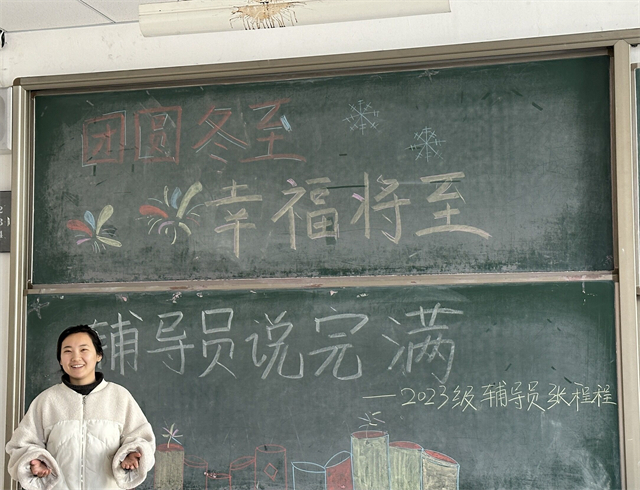 团圆冬至
幸福将至
辅导员说完满
—2023级辅导员张程程